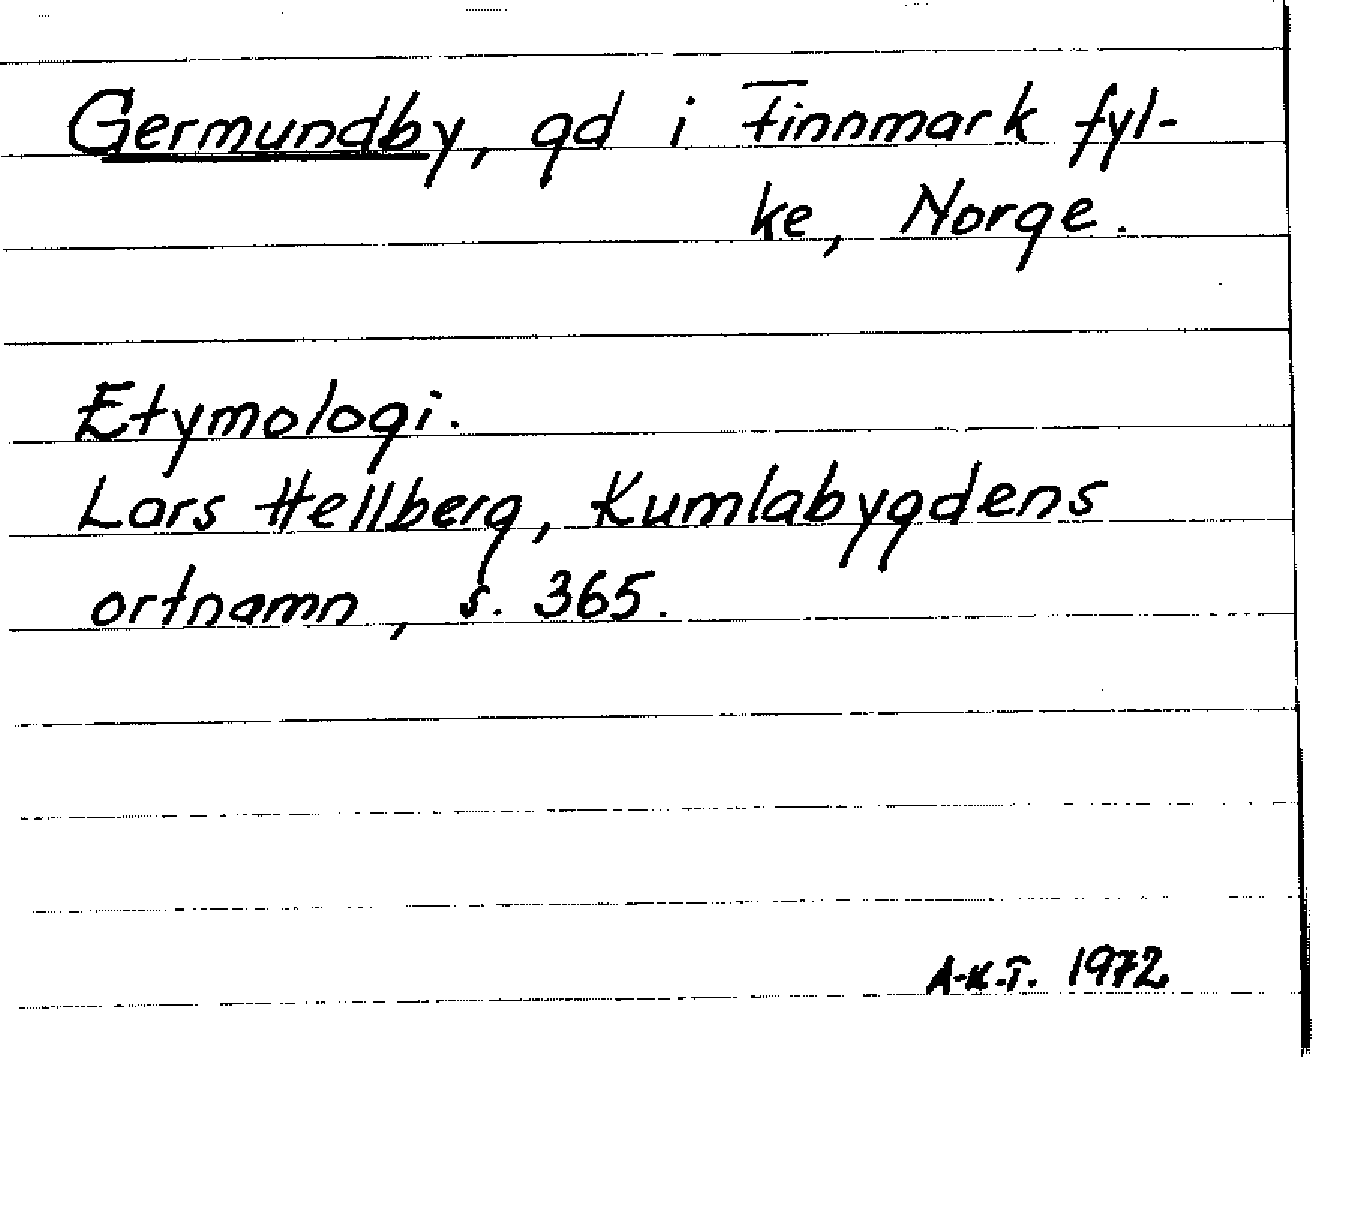 Germundby, gd i Finnmark fyl-
ke, Norge.
Etymologi.
Lars Hellberg, Kumlabygdens
ortnamn, s. 365.
A-K.T. 1972